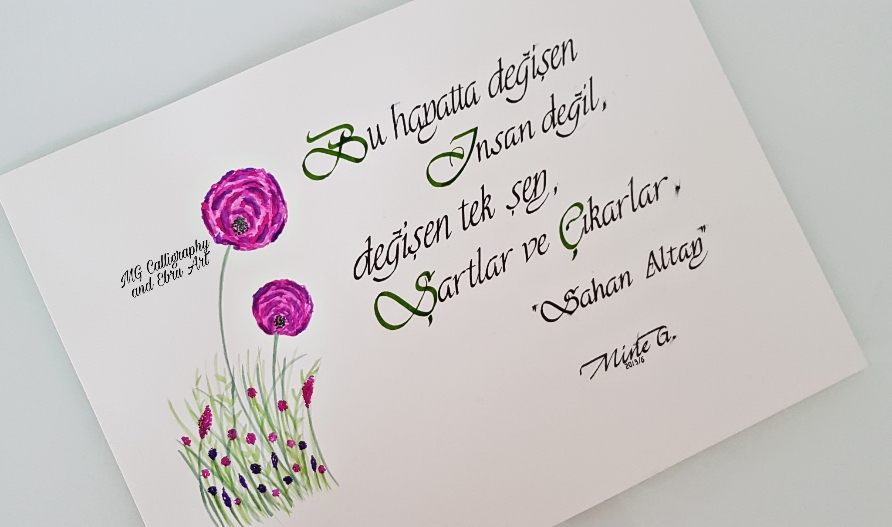 Bu hayatta değişen
İnsan değil,
değişen tek şey,
Şartlar ve Çıkarlar.
"Sahan Altay"
MG Calligraphy
and Ebru Art
2013/6